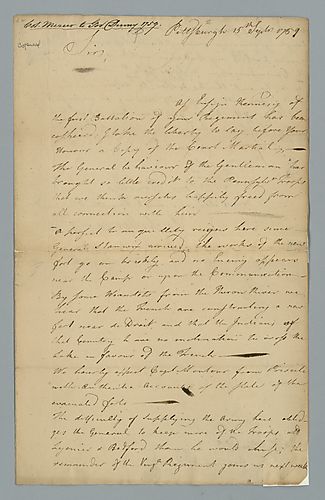 Col. Mercer to Gov Denny 1759.
Pittsburgh 15th Sept. 1759
Sir,
As Ensign Hennesy of
the first Battalion of your Regiment has been
cashiered I take the Liberty to lay before your
Honour a Copy of the Court Martial,
The General behaviour of the Gentleman has
brought so little credit to the Troops
that we think ourselves happily freed from
all connection with him
A perfect tranquility reigns here since
General Stanwix arrived, the works of the new
fort go on briskly and no Enemy appears
near the Camp or upon the Communication
By some Wiandots from the Huron River we
hear that the French are constructing a new
fort near de Troit and that the Indians of
that Country have no inclination to cross the
Lake in favour of the French
We hourly expect Capt. Montour from
with Authentic Accounts of the state of the
evacuated forts
The difficulty of supplying the Army here
ges the General to keep more of the Troops at
Ligonier & Bedford than he would chuse; the
remainder of the Virga. Regiment joins us next week